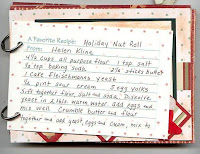 A Favorite Recipe: Holiday Nut Roll
From: Helen Kline
4½ cups all purpose flour 1 tsp salt
½ tsp baking soda 2½ sticks butter
1 cake Fleischmann's yeast
½ pint sour cream 5 egg yolks
Sift together flour, salt and soda. Dissolve
yeast in 2 tbls warm water, add eggs and
mix well. Crumble butter and flour
together and add yeast, eggs and cream, mix to